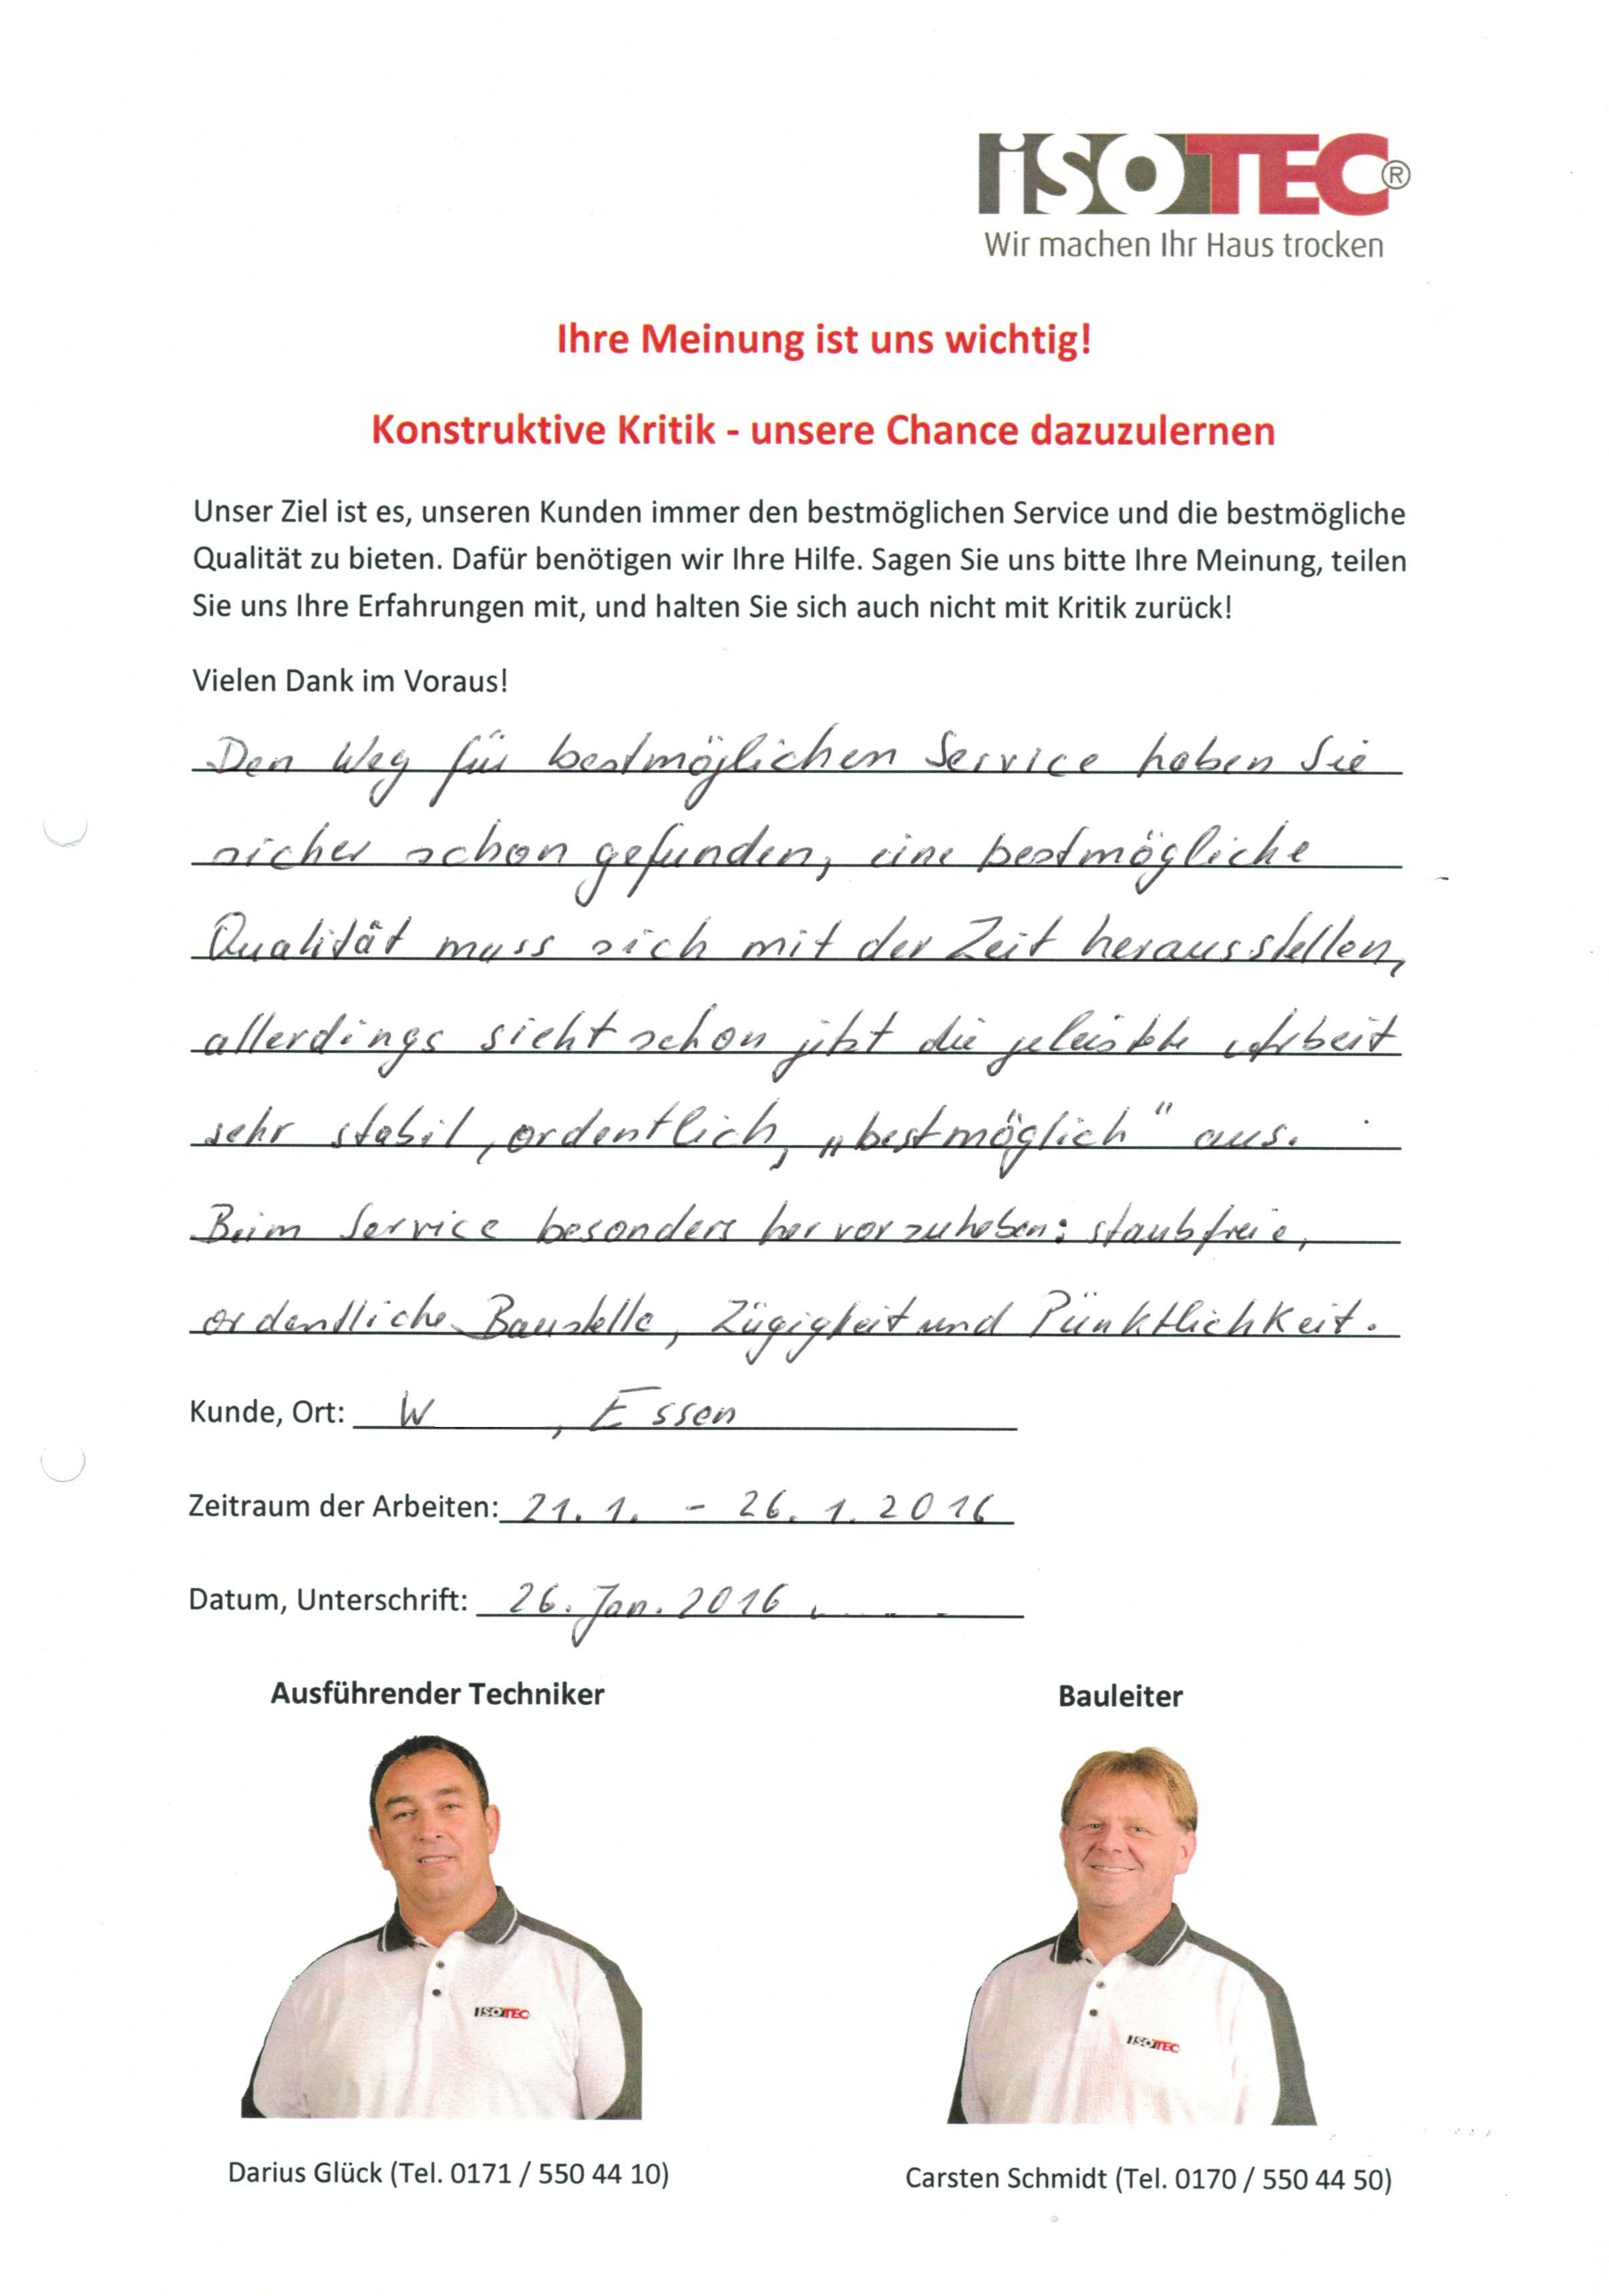 iSOTEC®
Wir machen Ihr Haus trocken
Ihre Meinung ist uns wichtig!
Konstruktive Kritik - unsere Chance dazuzulernen
Unser Ziel ist es, unseren Kunden immer den bestmöglichen Service und die bestmögliche
Qualität zu bieten. Dafür benötigen wir Ihre Hilfe. Sagen Sie uns bitte Ihre Meinung, teilen
Sie uns Ihre Erfahrungen mit, und halten Sie sich auch nicht mit Kritik zurück!
Vielen Dank im Voraus!
Den Weg für bestmöglichen Service haben Sie
sicher schon gefunden, eine bestmögliche
Qualität muss sich mit der Zeit herausstellen,
allerdings sieht schon jetzt die geleistete Arbeit
sehr stabil, ordentlich, „bestmöglich" aus.
Beim Service besonders hervorzuheben: staubfreie,
ordentliche Baustelle, Zügigkeit und Pünktlichkeit.
Kunde, Ort: W , Essen
Zeitraum der Arbeiten: 21.1. - 26.1.2016
Datum, Unterschrift: 26. Jan. 2016
Ausführender Techniker
Bauleiter
ISOTEC
ISOTEC
Darius Glück (Tel. 0171 / 550 44 10)
Carsten Schmidt (Tel. 0170 / 550 44 50)